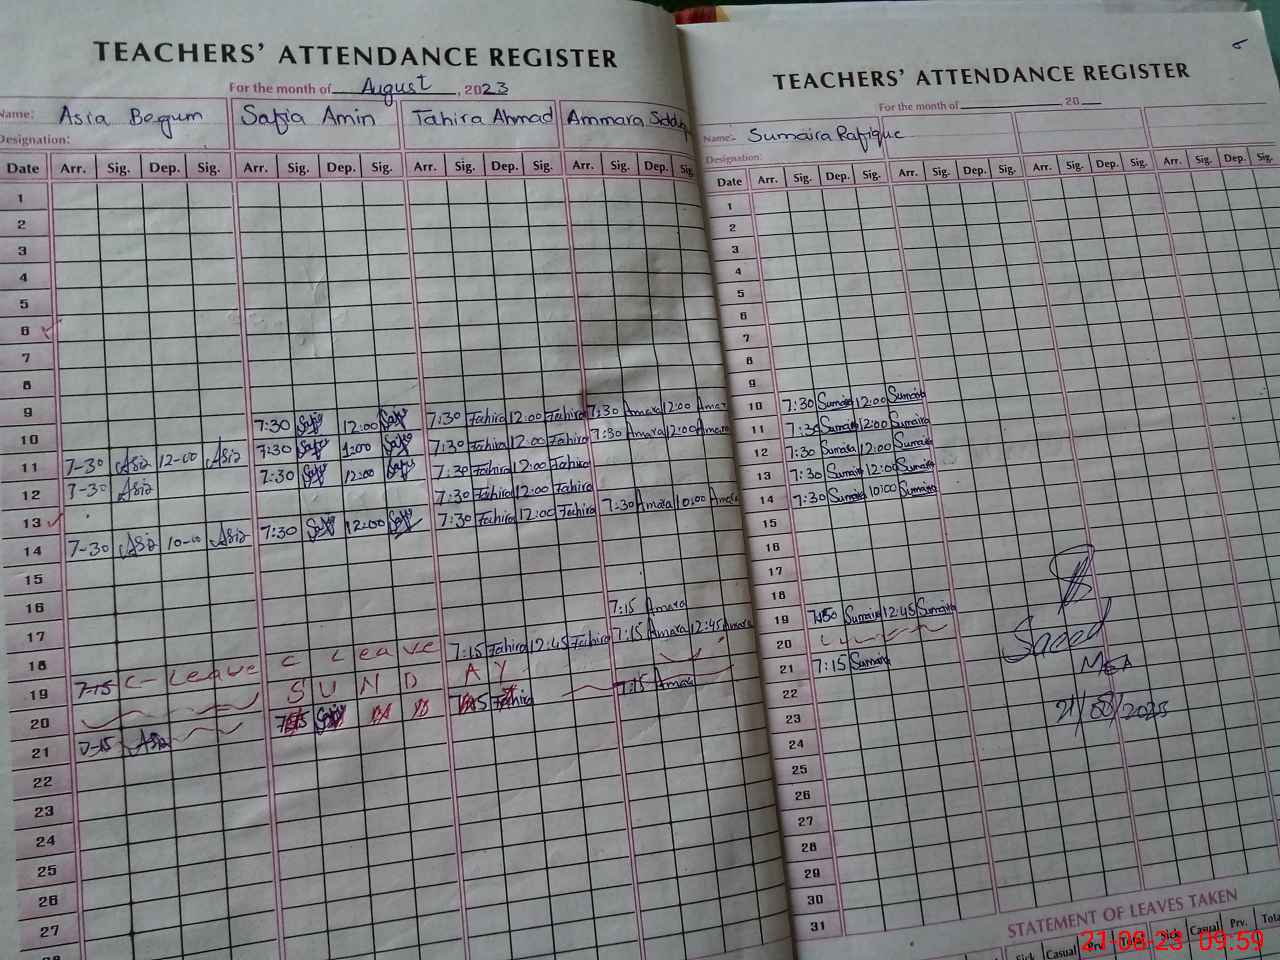 TEACHERS' ATTENDANCE REGISTER
For the month of August, 2023
Name: Asia Begum Safia Amin Tahira Ahmad Ammara
Designation:
Date Arr. Sig. Dep. Sig. Arr. Sig. Dep. Sig. Arr. Sig. Dep. Sig. Arr. Sig. Dep. Sig.
1
2
3
4
5
6
7
8
9
7:30 Safia 12:00 Safia 7:30 Tahira 12:00 Tahira 7:30 Amara 12:00 Amar
10
7:30 Safia 1:00 Safia 7:30 Tahira 12:00 Tahira 7:30 Amara 12:00 Amara
11 7-30 Asia 12-00 Asia 7:30 Safia 12:00 Safia 7:30 Tahira 12:00 Tahira
12 7-30 Asia 7:30 Tahira 12:00 Tahira
13 7:30 Tahira 12:00 Tahira 7:30 Amara 10:00 Amara
14 7-30 Asia 10-00 Asia 7:30 Safia 12:00 Safia
15
16
7:15 Amara
17
7:15 Tahira 12:45 Tahira 7:15 Amara 12:45 Amara
18
C Leave
19 7-15 C-Leave SUNDAY
20
7:15 Tahira 7:15 Amara
21 7-15 Asia
22
23
24
25
26
27
TEACHERS' ATTENDANCE REGISTER
For the month of 20
Name:- Sumaira Rafique
Designation:
Date Arr. Sig. Dep. Sig. Arr. Sig. Dep. Sig. Arr. Sig. Dep. Sig. Arr. Sig. Dep. Sig.
1
2
3
4
5
6
7
8
9
10 7:30 Sumaira 12:00 Sumaira
11 7:30 Sumaira 12:00 Sumaira
12 7:30 Sumaira 12:00 Sumaira
13 7:30 Sumaira 12:00 Sumaira
14 7:30 Sumaira 10:00 Sumaira
15
16
17
18
19 Sumaira 12:45 Sumaira
20
21 7:15 Sumaira
22
23
24
25
26
27
28
29
30
31
Saeed
MEA
STATEMENT OF LEAVES TAKEN
Sick Casual Prv. Total Sick Casual Prv. Tota
21-08-23 09:59